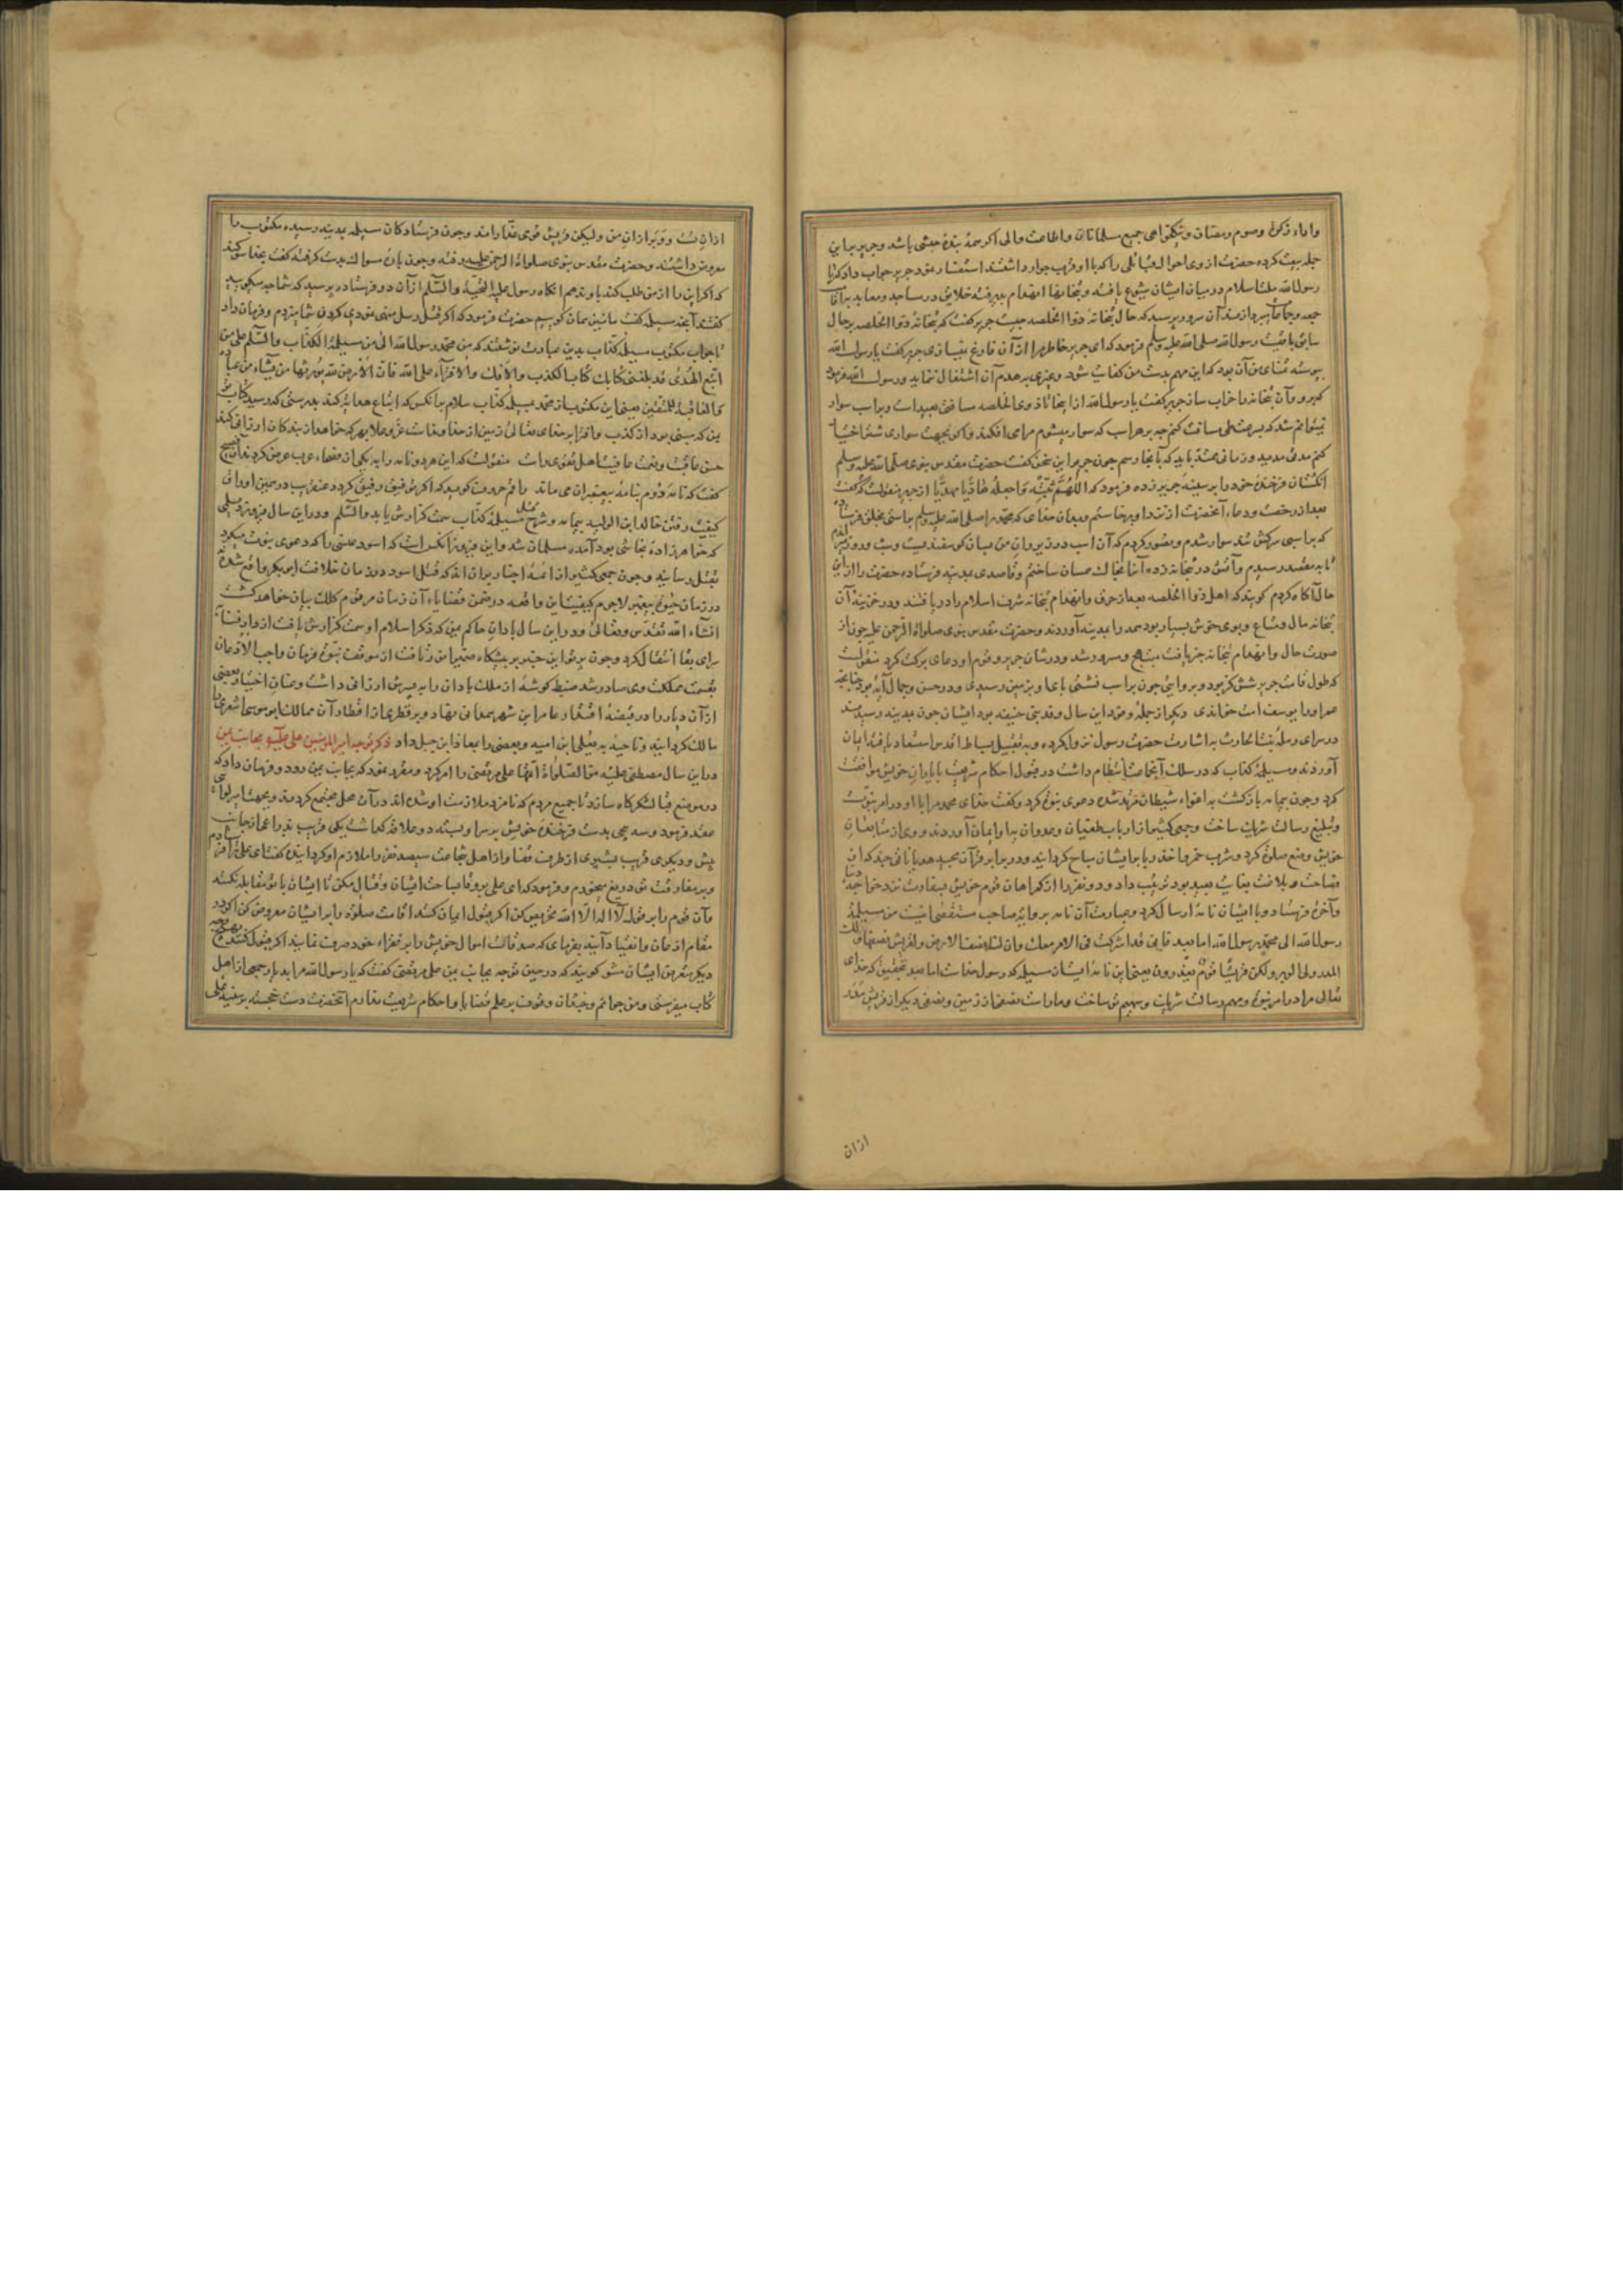 واداء زکوة وصوم رمضان ونیکخواهی جمیع مسلمانان واطاعت والی اکرچه بندهٔ حبشی باشد وجریر براین
جمله بیعت کرده حضرت ازوی احوال قبائلی راکه با او قرب جوار داشتند استفسار نمود جریر جواب دادکه یا
رسول الله ملت اسلام درمیان ایشان شیوع یافته وبتخانها انهدام پذیرفته خلایق در مساجد ومعابد
جمعه وجماعات آن سرور پرسیدکه حال بتخانه ذوالخلصه چیست جریر کفت که بتخانه ذوالخلصه برحال
سابق باقیست رسول الله صلی الله علیه وسلم فرمودکه ای جریر خاطر مرا ازآن فارغ نمیسازی جریر کفت یارسول الله
پیوسته تمنای من آن بودکه این مهم بدست من کفایت شود وغیری برهدم آن اشتغال ننماید ورسول الله فرمود
که برو وآن بتخانه را خراب ساز جریر کفت یا رسول الله از اینجا تا ذوی الخلصه مسافتی بعیداست وبراسب سوار
نمیتوانم شد که بسرعت طی مسافت کنم چه برهر اسب که سوار میشوم مرامی افکند واکر بجهت سواری شتر اختیار
کنم مدتی مدید وزمانی ممتد باید که بآنجا رسم چون جریر این سخن کفت حضرت مقدس نبوی صلی الله علیه وسلم
انکشتان فرخنده خود را بر سینهٔ جریر زده فرمود که اللهم ثبته واجعله هادیا مهدیا از جریر منقولست که کفت
بعد از رخصت ودعاء آنحضرت از نزد او برخاستم
که براسبی سرکش تند سوار شدم وتصورکردم که آن اسب در زیر ران من بسان کوسفندیست
تا بمقصد رسیدم وآتش در بتخانه زده آنرا بخاک یکسان ساختم وقاصدی بمدینه فرستاده حضرت را ازاین
حال آکاه کردم کویند که اهل ذوالخلصه بعداز حرق وانهدام بتخانه شرف اسلام را دریافتند ودر خزینهٔ آن
بتخانه مال ومتاع وبوی خوش بسیار بود همه را بمدینه آوردند وحضرت مقدس نبوی صلوات الرحمن علیه چون از
صورت حال وانهدام بتخانه خبر یافت مبتهج ومسرور شد ودرشان جریر وقوم او دعای برکت کرد منقولست
که طول قامت جریر شش کز بود وبروایتی چون براسب نشستی پاهاء او بزمین رسیدی ودر حسن وجمال آیتی بود چنانچه
عمر اورا یوسف امت خواندی دیکر از جمله وفود این سال وفد بنی حنیفه بود ایشان چون بمدینه رسیدند
درسرای رمله بنت الحارث به اشارت حضرت رسول نزول کرده وبه تقبیل بساط اقدس استسعاد یافته ایمان
آوردند ومسیلمهٔ کذاب که درسلک آنجماعت انتظام داشت در قبول احکام شریعت با یاران خویش موافقت
کرد وچون بیمامه بازکشت به اغواء شیطان مرتد شده دعوی نبوت کرد وکفت خدای محمد مرا با او درامر نبوت
وتبلیغ رسالت شریک ساخت وجمعی کثیر از ارباب طغیان وعدوان به او ایمان آوردند ووی از متابعان
خویش وضع صلوة کرد وشرب خمر واخذ ربا بر ایشان مباح کردانید ودر برابر قرآن مجید هذیانی چند که از
فصاحت وبلاغت بغایت بعید بود ترتیب داد ودو نفر را از کمراهان قوم خویش بسفارت نزد خواجهٔ دنیا
وآخرت فرستاد وبا ایشان نامهٔ ارسال کرد وعبارت آن نامه بروایت صاحب مستقصی اینست من مسیلمة
رسول الله الی محمد رسول الله اما بعد فانی قد اشرکت فی الامر معک وان لنا نصف الارض ولقریش نصفها
ولکن قریشا قوم یغدرون یعنی این نامه ایشان مسیلمه که رسول خداست اما بعد بتحقیق که خدای
تعالی مرا درامر نبوت ومهم رسالت شریک وسهیم تو ساخت وماراست نصفی از زمین ونصفی دیکر از قریش
ازان
ازان تست ووبر ازان من ولیکن قریش قومی غدارانند وچون فرستادکان مسیلمه بمدینه رسیده مکتوب را
معروض داشتند وحضرت مقدس نبوی صلوات الرحمن علیه وچون پاره سواک بدست کرفته کفت بخدا سوکند
که اکر این را از من طلب کند باو ندهم آنکاه رسول علیه التحیة والسلام ازآن دو فرستاده پرسید که شما چه میکویید
کفتند آنچه مسیلمه کفت ما نیز همان کوییم حضرت فرمود که اکر قتل رسل منهی نبودی کردن شما بزدم وفرمان داد
تا جواب مکتوب مسیلمهٔ کذاب بدین عبارت نوشتند که من محمد رسول الله الی من مسیلمة الکذاب والسلام علی من
اتبع الهدی قد بلغنی کتابک کتاب الکذب والافک والافتراء علی الله فان الارض لله یورثها من یشاء من عباده
والعاقبة للمتقین یعنی این مکتوب از محمد بمسیلمهٔ کذاب سلام برآنکس که اتباع هدایت کند بدرستی که رسید کتاب تو
بمن که مبنی بود از کذب وافترا بر خدای تعالی زمین از خداوندست عز وعلا بهر که خواهد از بندکان ارزانی کند
حسن عاقبت ونعمت عافیت اهل تقوی راست منقولست که این هر دو نامه را به یکی از فصحاء عرب عرض کردند آن فصیح
کفت که نامهٔ دوم بنامهٔ پیغمبران می ماند راقم حروف کوید که اکر توفیق رفیق کردد عنقریب در همین اوراق
کیفیت رفتن خالد ابن الولید بیمامه وشرح قتل مسیلمهٔ کذاب سمت کزارش یابد والسلام ودر این سال فیروز دیلمی
که خواهرزادهٔ نجاشی بود آمده مسلمان شد واین فیروز آنکس است که اسود عنسی راکه دعوی نبوت میکرد
بقتل رسانید وچون جمعی کثیر از ائمهٔ اخبار برآن اندکه قتل اسود در زمان خلافت ابوبکر واقع شده نه
در زمان حیوة پیغمبر لاجرم کیفیت این واقعه در ضمن قضایاء آن زمان مرقوم کلک بیان خواهد کشت
انشاء الله تقدس وتعالی ودر این سال باذان حاکم یمن که ذکر اسلام او سمت کزارش یافت از دار فنا
سرای بقا انتقال کرد وچون پرتو این خبر بر پیشکاه ضمیر انور تافت از موقف نبوت فرمان واجب الاذعان
بقسمت مملکت وی صادر شد ضبط کوشهٔ از ملک باذان را به پسرش ارزانی داشت وعنان اختیار بعضی
ازآن دیار را در قبضهٔ اقتدار عامر ابن شهر همدانی نهاد وبر قطری از اقطار آن ممالک ابوموسی اشعری را
مالک کردانید وناحیهٔ به یعلی ابن امیه وبعضی را بمعاذ ابن جبل داد ذکر توجه امیرالمؤمنین علی علیه السلام بجانب یمن
در این سال مصطفی علیه من الصلوات اتمها علی مرتضی را امر کرد ومقرر نمود که بجانب یمن رود وفرمان داد که
در موضع قبا لشکرکاه سازد تا جمیع مردم که نامزد ملازمت او شده اند در آن محل مجتمع کردند وبجهت امیر لوائی
عقد فرمود وسه پیچی بدست فرخنده خویش بر سر او بسته دو علاقه کذاشت یکی قریب بذراعی از جانب
پیش ودیکری قریب بشبری از طرف قفا واز اهل شجاعت سیصد نفر را ملازم او کردانیده کفت ای علی ترا فرستادم
وبر مفارقت تو دریغ میخورم وفرمود که ای علی برو وتا مباحث ایشان وقتال مکن تا ایشان با تو مقابله نکنند
وآن قوم را بر قول لا اله الا الله تحریص کن اکر قبول ایمان کنند اقامت صلوة را بر ایشان معروض کن اکر در
مقام اذعان وانقیاد آیند بفرمای که صدقات اموال خویش را بر فقراء خود صرف نمایند اکر قبول کنند بهیچ وجه
دیکر متعرض ایشان مشو کویند که در حین توجه بجانب یمن علی مرتضی کفت که یا رسول الله مرا به دیار جمعی از اهل
کتاب میفرستی ومن جوانم وخبرتان وقوف بر علم قضایا واحکام شریعت ندارم آنحضرت دست خجسته بر سینهٔ علی